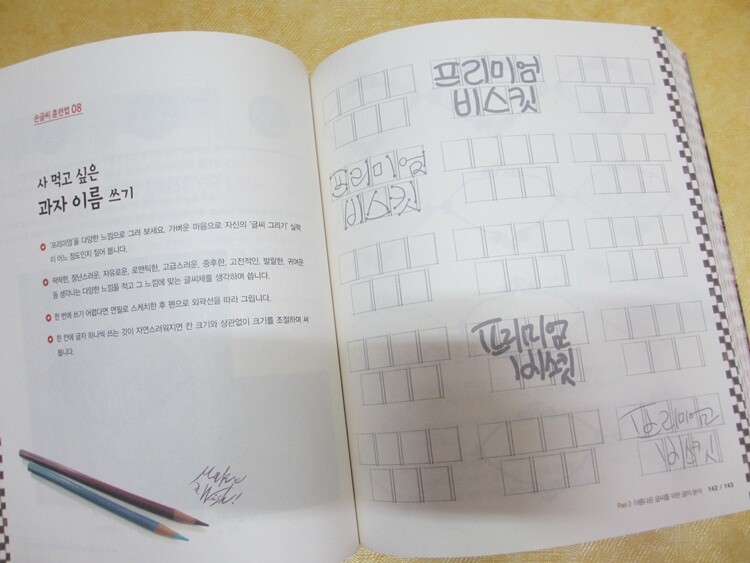 손글씨 훈련법 08
사 먹고 싶은
과자 이름 쓰기
'프리미엄'을 다양한 느낌으로 그려 보세요. 가벼운 마음으로 자신의 '글씨 그리기' 실력
이 어느 정도인지 짚어 봅니다.
딱딱한, 장난스러운, 자유로운, 로맨틱한, 고급스러운, 중후한, 고전적인, 발랄한, 귀여운
등 생각나는 다양한 느낌을 적고 그 느낌에 맞는 글씨체를 생각하며 씁니다.
한 번에 쓰기 어렵다면 연필로 스케치한 후 펜으로 외곽선을 따라 그립니다.
한 칸에 글자 하나씩 쓰는 것이 자연스러워지면 칸 크기와 상관없이 크기를 조절하며 써
봅니다.
프리미엄
비스킷
프리미엄
비스킷
프리미엄
비스킷
프리미엄
비스킷
Part 2. 아름다운 글씨를 위한 글자 분석 142 / 143